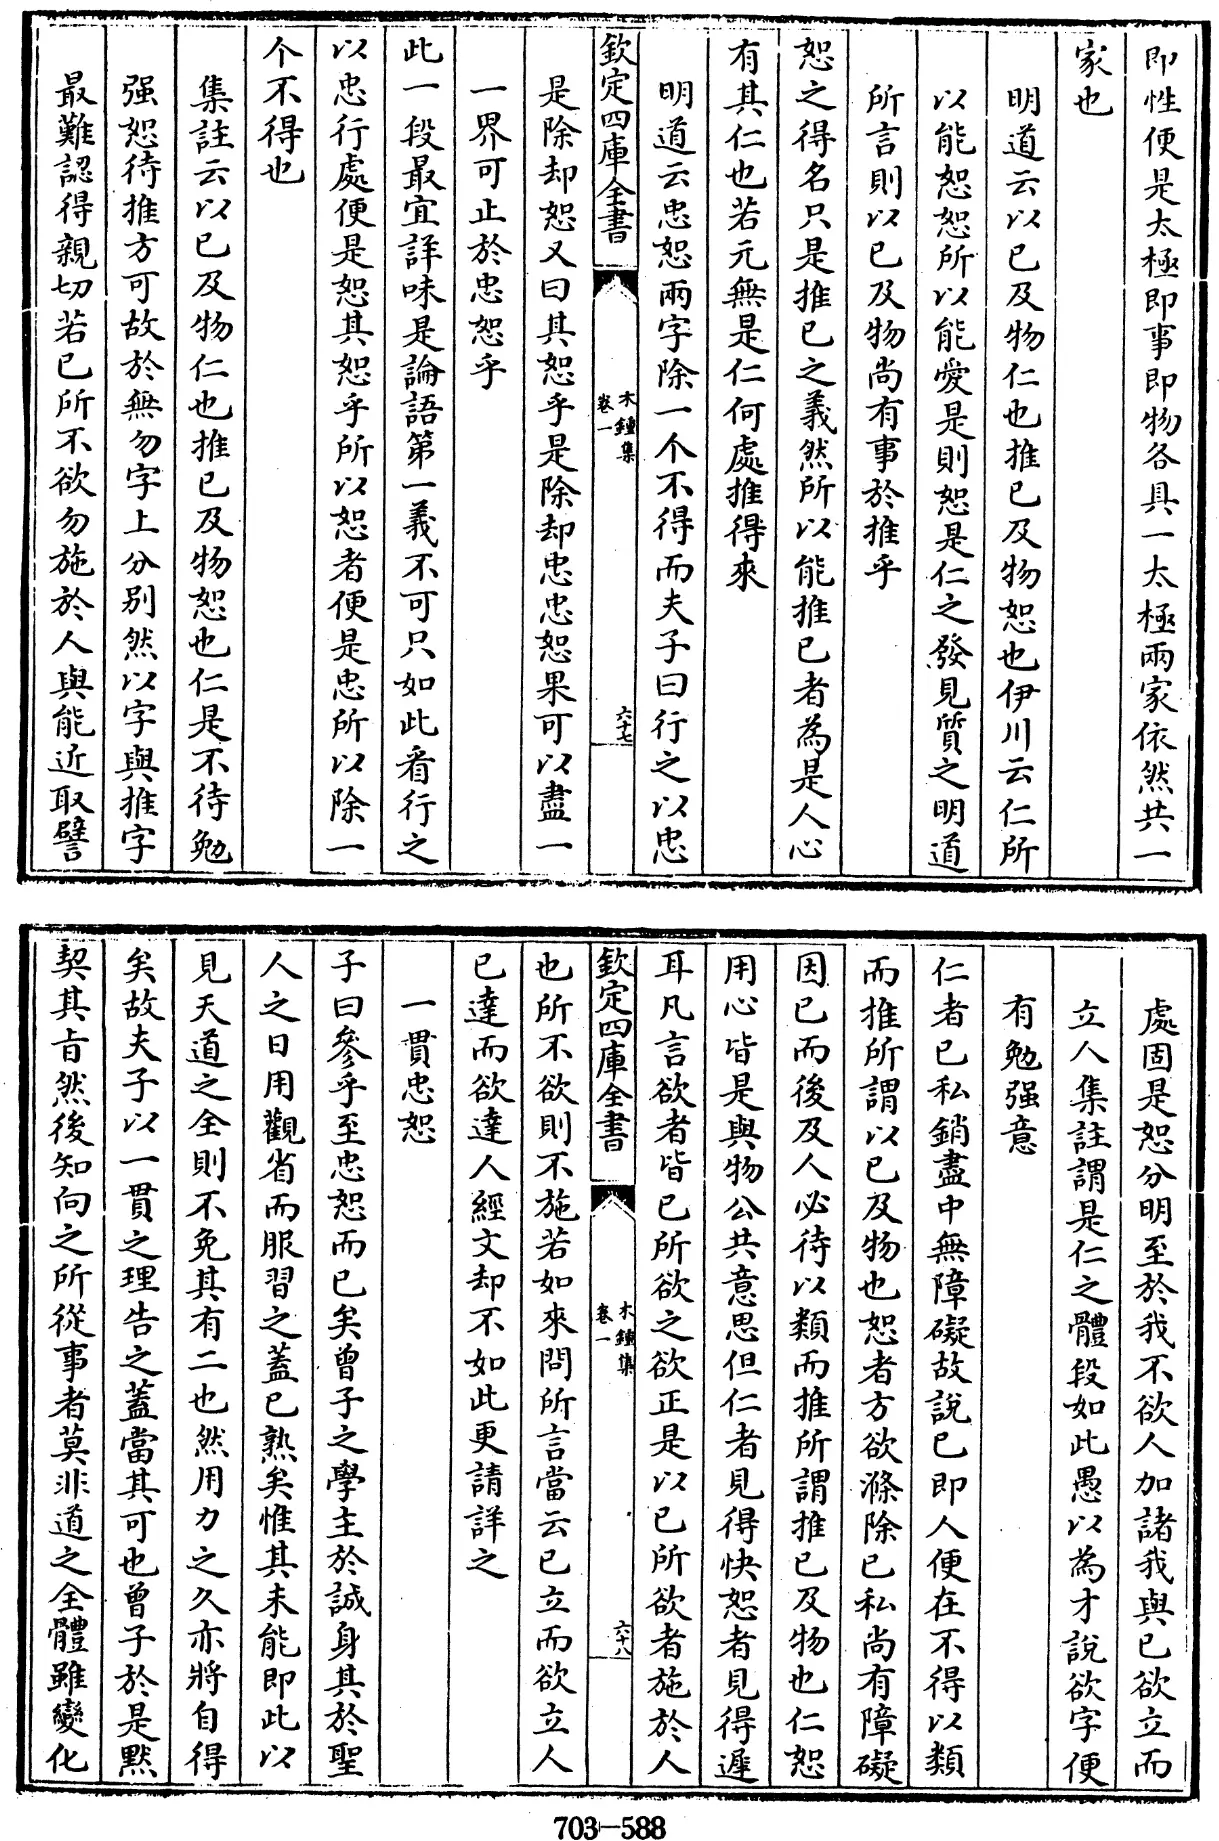 即性便是太極即事即物各具一太極兩家依然共一
家也
明道云以已及物仁也推已及物恕也伊川云仁所
以能恕恕所以能愛是則恕是仁之發見質之明道
所言則以已及物尚有事於推乎
恕之得名只是推已之義然所以能推已者為是人心
有其仁也若元無是仁何處推得來
明道云忠恕兩字除一个不得而夫子曰行之以忠
欽定四庫全書
木鐘集
卷一
六十七
是除却恕又曰其恕乎是除却忠忠恕果可以盡一
一界可止於忠恕乎
此一段最宜詳味是論語第一義不可只如此看行之
以忠行處便是恕其恕乎所以恕者便是忠所以除一
个不得也
集註云以已及物仁也推已及物恕也仁是不待勉
强恕待推方可故於無勿字上分別然以字與推字
最難認得親切若已所不欲勿施於人與能近取譬
處固是恕分明至於我不欲人加諸我與已欲立而
立人集註謂是仁之體段如此愚以為才說欲字便
有勉强意
仁者已私銷盡中無障礙故說已即人便在不得以類
而推所謂以已及物也恕者方欲滌除已私尚有障礙
因已而後及人必待以類而推所謂推已及物也仁恕
用心皆是與物公共意思但仁者見得快恕者見得遲
耳凡言欲者皆已所欲之欲正是以已所欲者施於人
欽定四庫全書
木鐘集
卷一
六十八
也所不欲則不施若如來問所言當云已立而欲立人
已達而欲達人經文却不如此更請詳之
一貫忠恕
子曰參乎至忠恕而已矣曾子之學主於誠身其於聖
人之日用觀省而服習之蓋已熟矣惟其未能即此以
見天道之全則不免其有二也然用力之久亦將自得
矣故夫子以一貫之理告之蓋當其可也曾子於是黙
契其旨然後知向之所從事者莫非道之全體雖變化
703-588